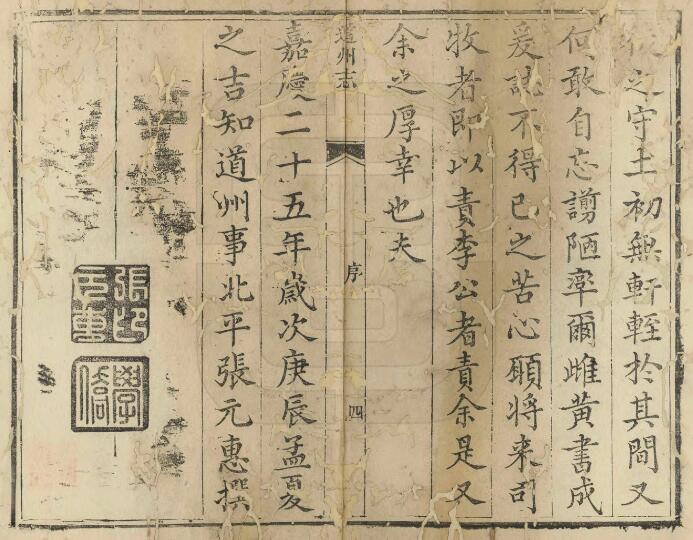 之守土初無軒輊於其間又
何敢自忘謭陋率爾雌黃書成
爰誌不得已之苦心願將來司
牧者即以責李公者責余是又
余之厚幸也夫
道州志
序
四
嘉慶二十五年歲次庚辰孟夏
之吉知道州事北平張元惠撰
張印
元惠